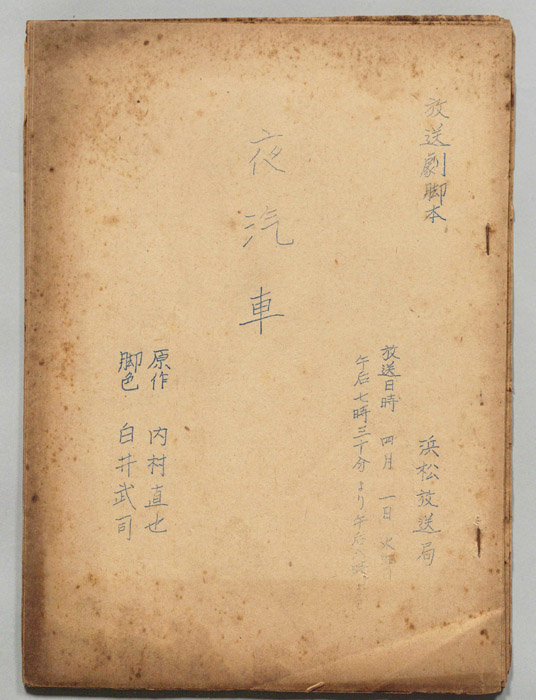 放送劇脚本
浜松放送局
放送日時 四月 一日 火
午后七時三十分より午后八時
夜汽車
原作 内村直也
脚色 白井武司